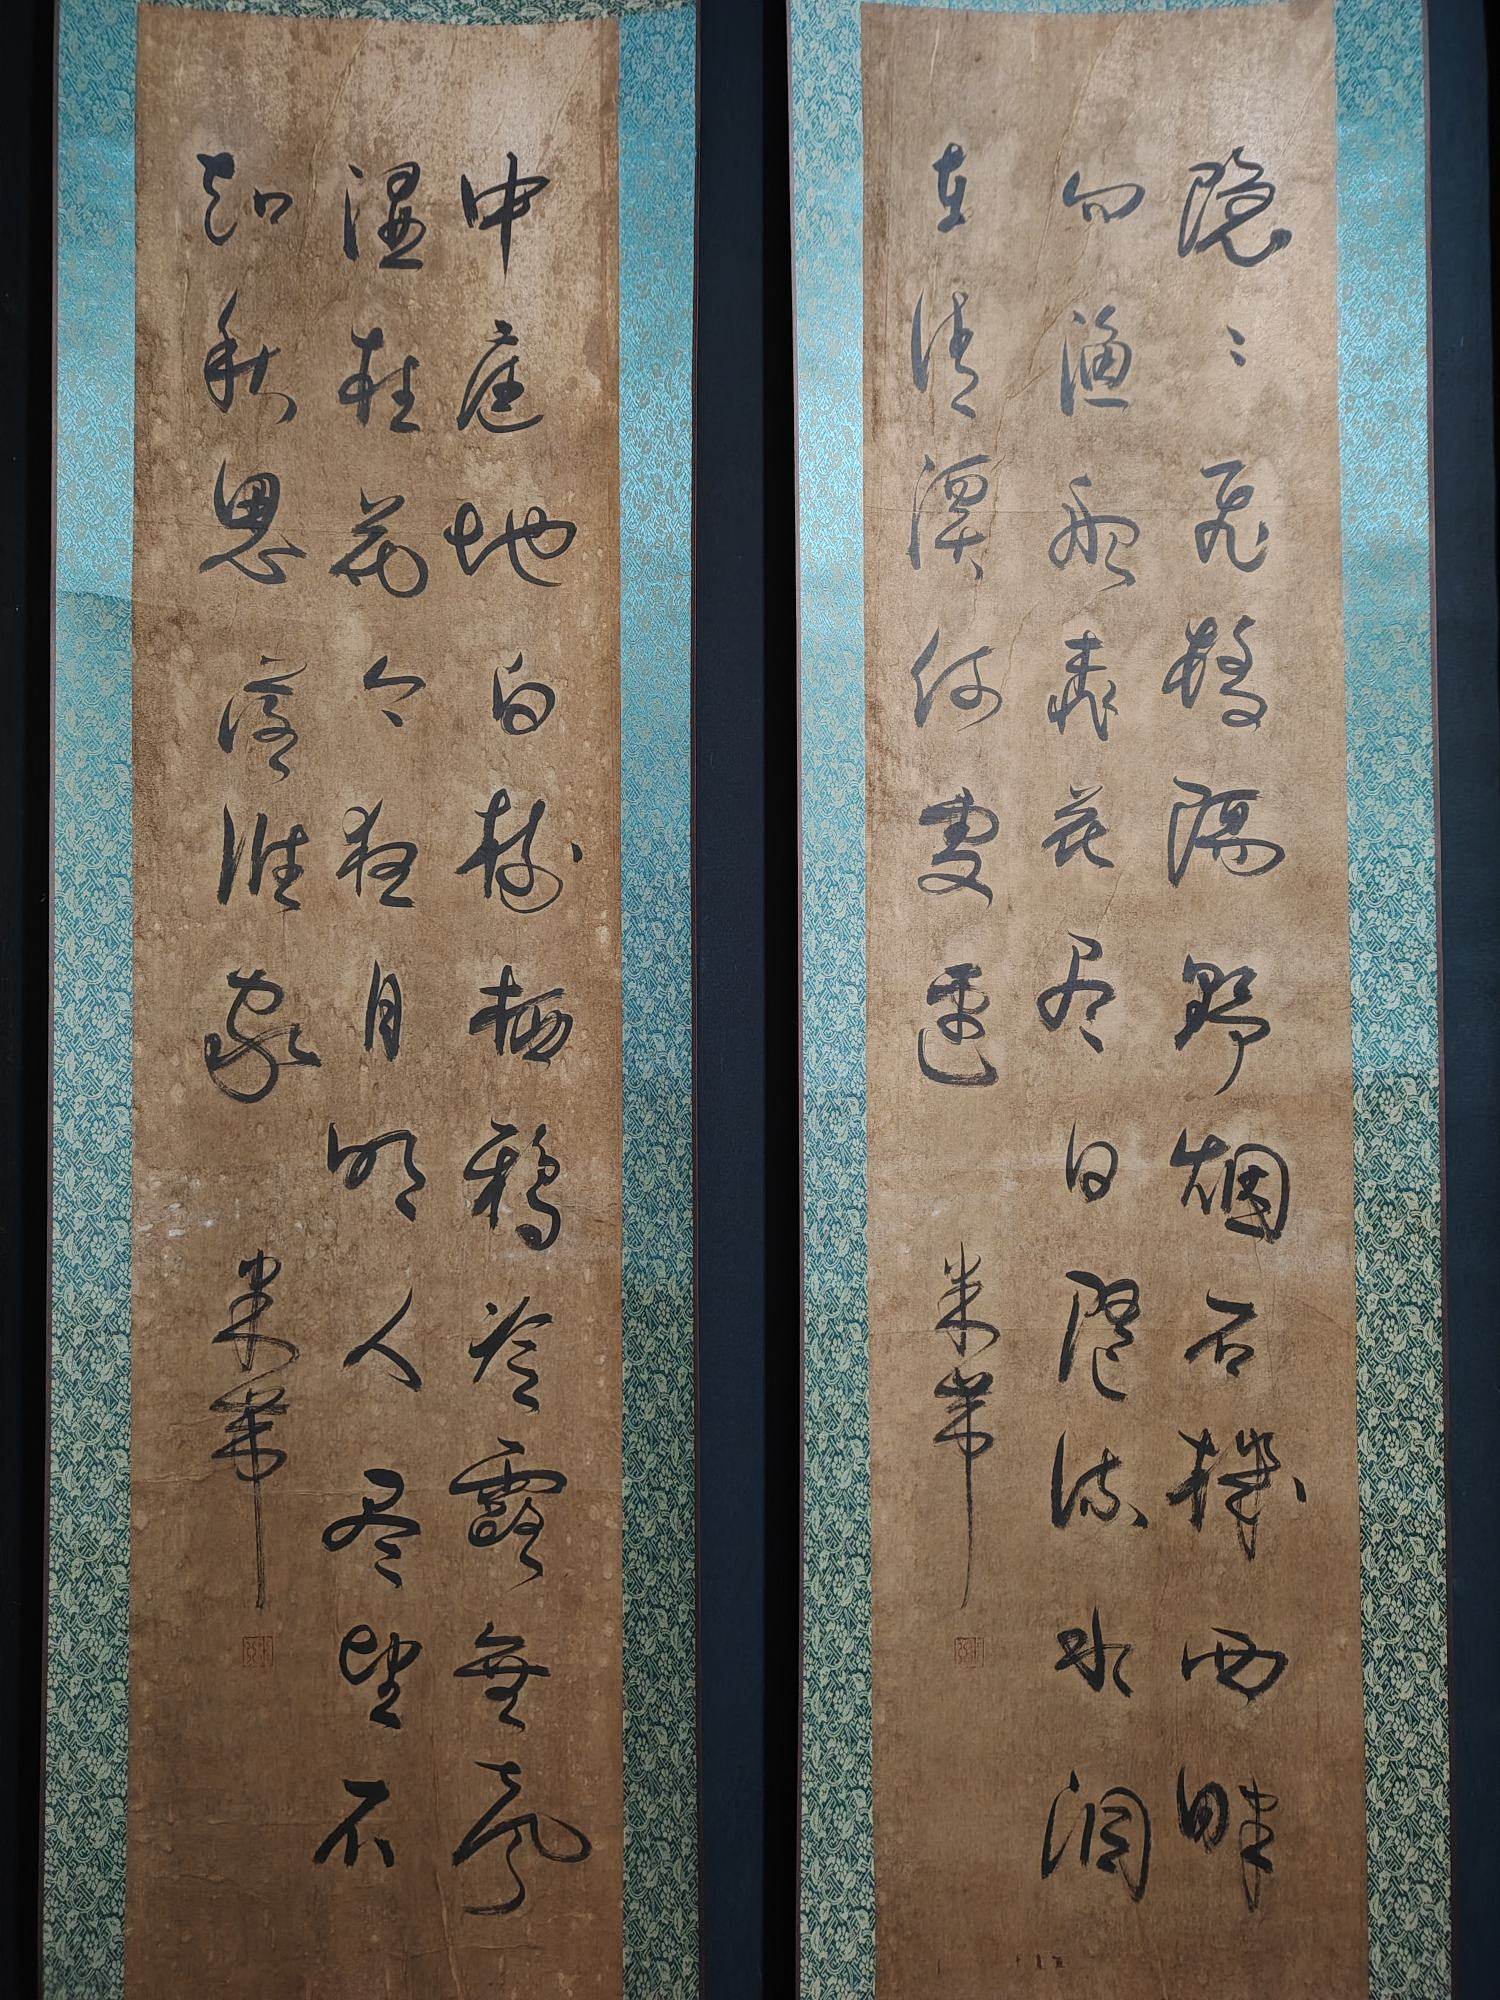 隐〻飛橋隔野烟石機西畔
问渔船桃花尽日随流水洞
在清溪何處邊
米芾
中庭地白樹栖鴉冷露無聲
濕桂花今夜月明人尽望不
知秋思落誰家
米芾